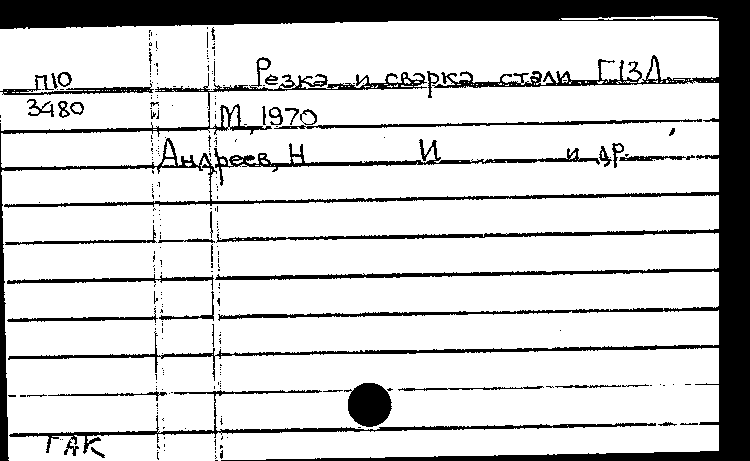 П10
3480
Резка и сварка стали Г13Л.
М., 1970
Андреев, Н И и др.
ГАК